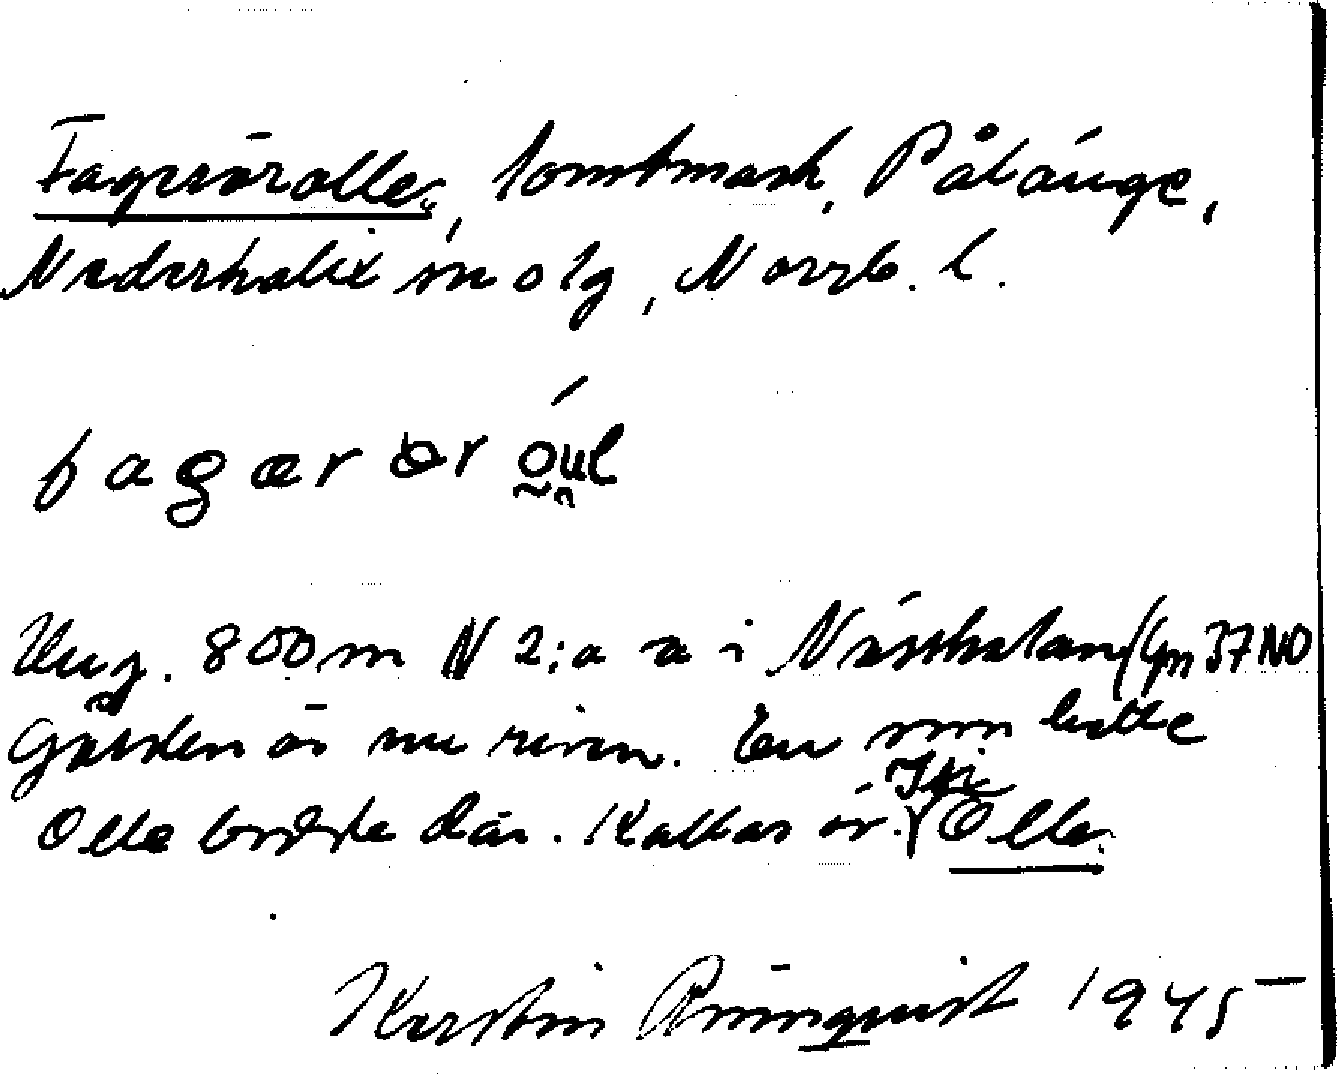 Fagerörolle, tomtmark, Pålänge,
Nederkalix sn o lg, Norrb. l.
fagær ør óul
Ung. 800 m N 2:a a i Nästhalam (Gm 37 NO
Gården är nu riven. En som hette
Olle bodde där. Kallas är Olle
Kerstin Rönnquist 1945